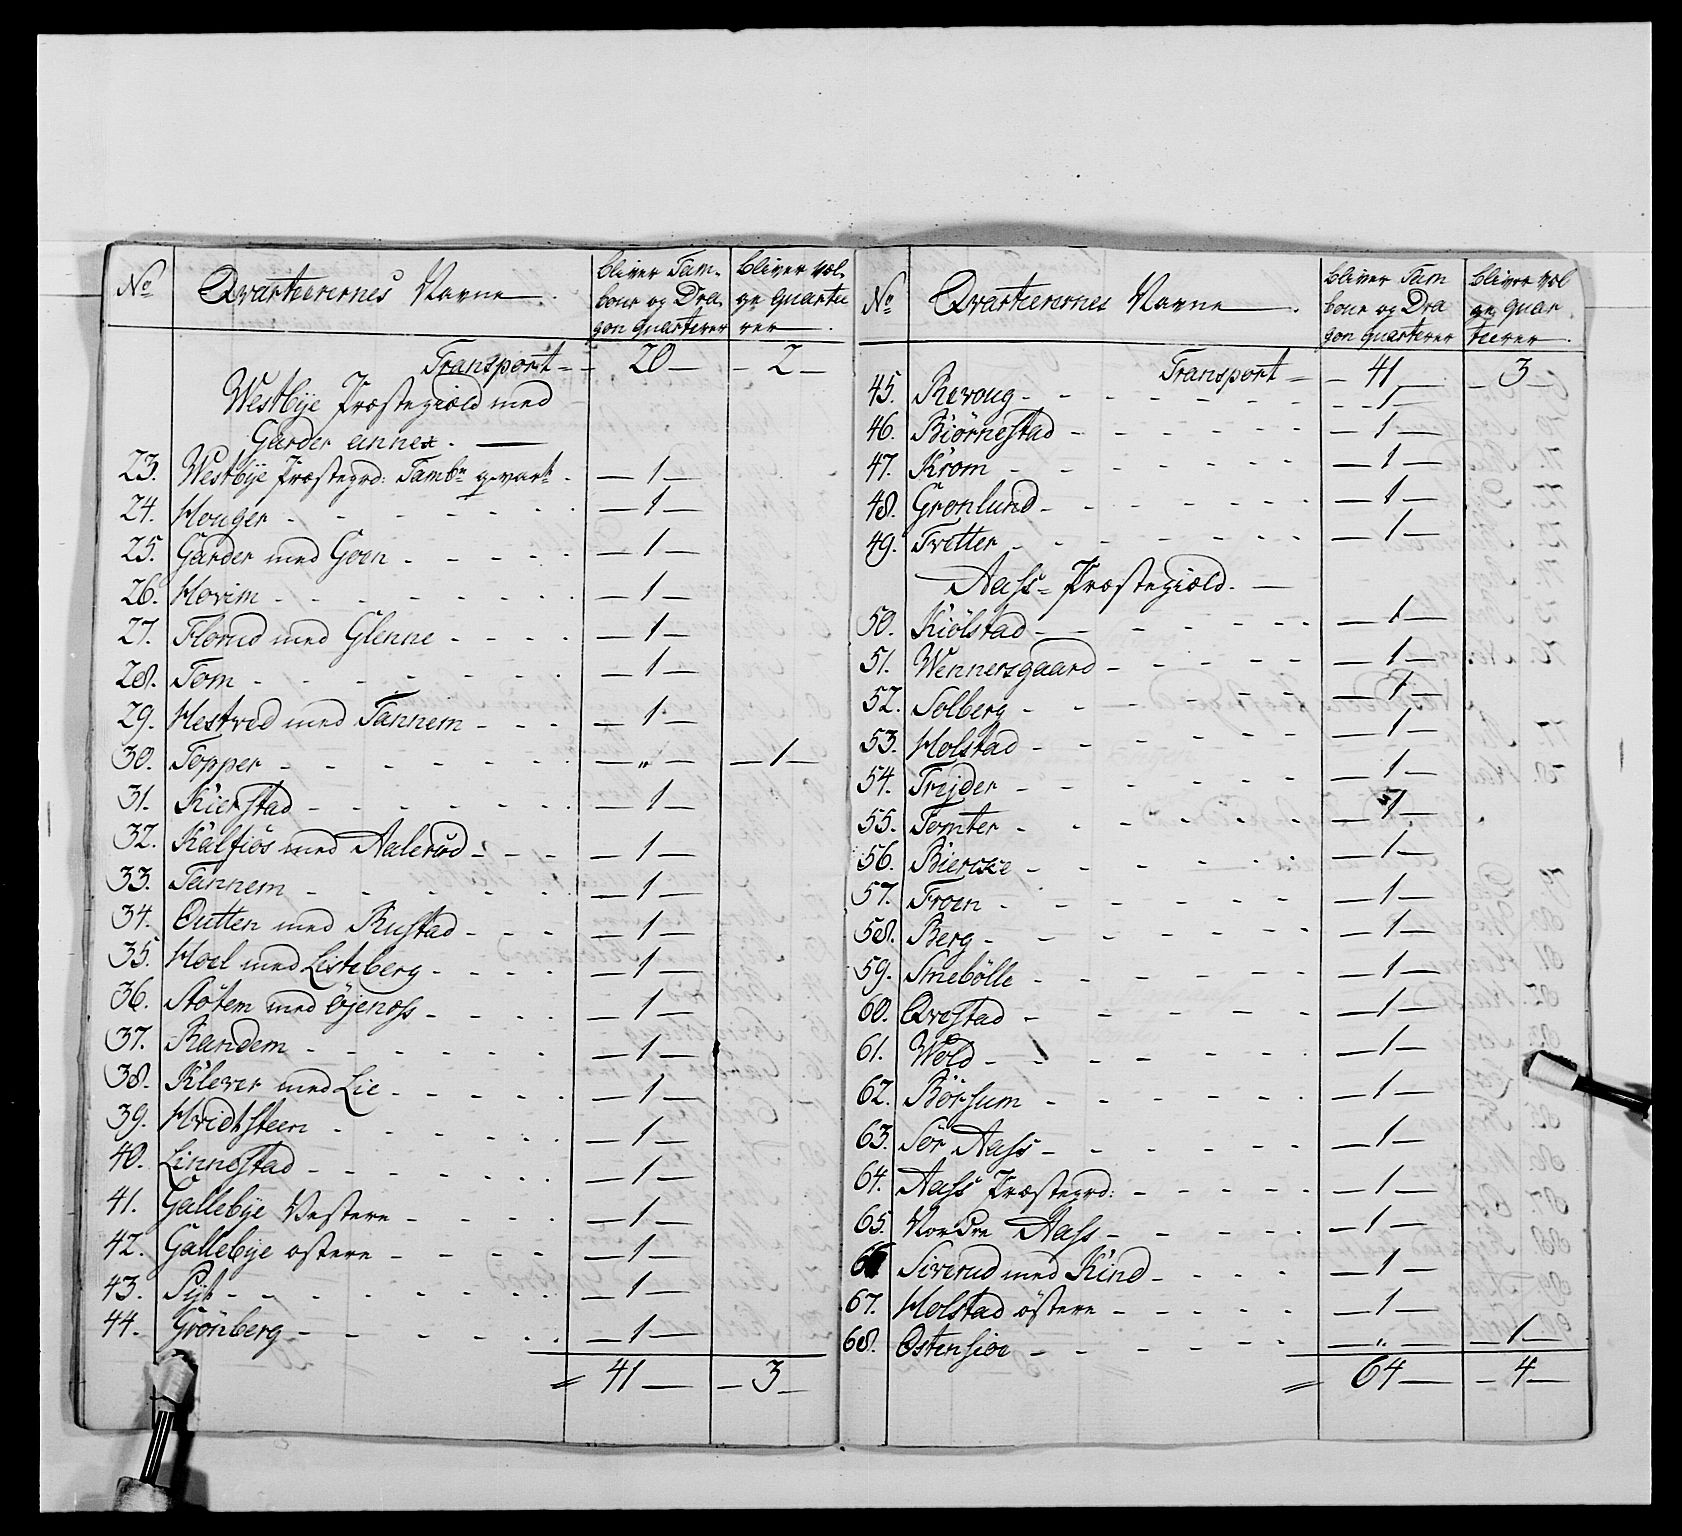 No Qvarteerernes Navne bliver Tam- bliver væl-
bour og Dra- ge quartee
gon quarterer rer
Transport = - 20 — - 2 —
Westbye Præstegiæld med
Garder annex. —
23. Westbye Præstegrd: Tambr qvartr. — 1 —
24. Houger — 1 —
25. Garder med Goen — 1 —
26. Hovim — 1 —
27. Florud med Glenne — 1 —
28. Tom — 1 —
29. Hestved med Tannem — 1 —
30. Topper — „ — — 1 —
31. Kierstad — 1 —
32. Kalfiøs med Aalerud — 1 —
33. Tannem — 1 —
34. Qutten med Rustad — 1 —
35. Hoel med Listeberg — 1 —
36. Støtem med Öjenæss — 1 —
37. Randem — 1 —
38. Klever med Lie — 1 —
39. Hvidtsteen — 1 —
40. Linnestad — 1 —
41. Gallebye Vestere — 1 —
42. Gallebye østere — 1 —
43. Pijt — 1 —
44. Grönberg — 1 —
= 41 — - 3 —
No Qvarteerernes Navne bliver Tam bliver væl
bour og Dra ge quar
gon quarterer teerer
Transport = - 41 — - 3 —
45. Revoug — 1 —
46. Biørnestad — 1 —
47. Krom — 1 —
48. Grønlund — 1 —
49. Tvetter — 1 —
Aass= Præstegiæld. —
50. Kiölstad — 1 —
51. Wennersgaard — 1 —
52. Solberg — 1 —
53. Holstad — 1 —
54. Frejder — 1 —
55. Tomter — 1 —
56. Biercke — 1 —
57. Froen — 1 —
58. Berg — 1 —
59. Smebölle — 1 —
60. Qvestad — 1 —
61. Wold — 1 —
62. Börsum — 1 —
63. Sör Aass — 1 —
64. Aass Præstegrd: — 1 —
65. Nordre Aass — 1 —
66 Siverud med Kind — 1 —
67. Holstad östere — 1 —
68. Østensiøe — „ — — 1 —
= 64 — - 4 —